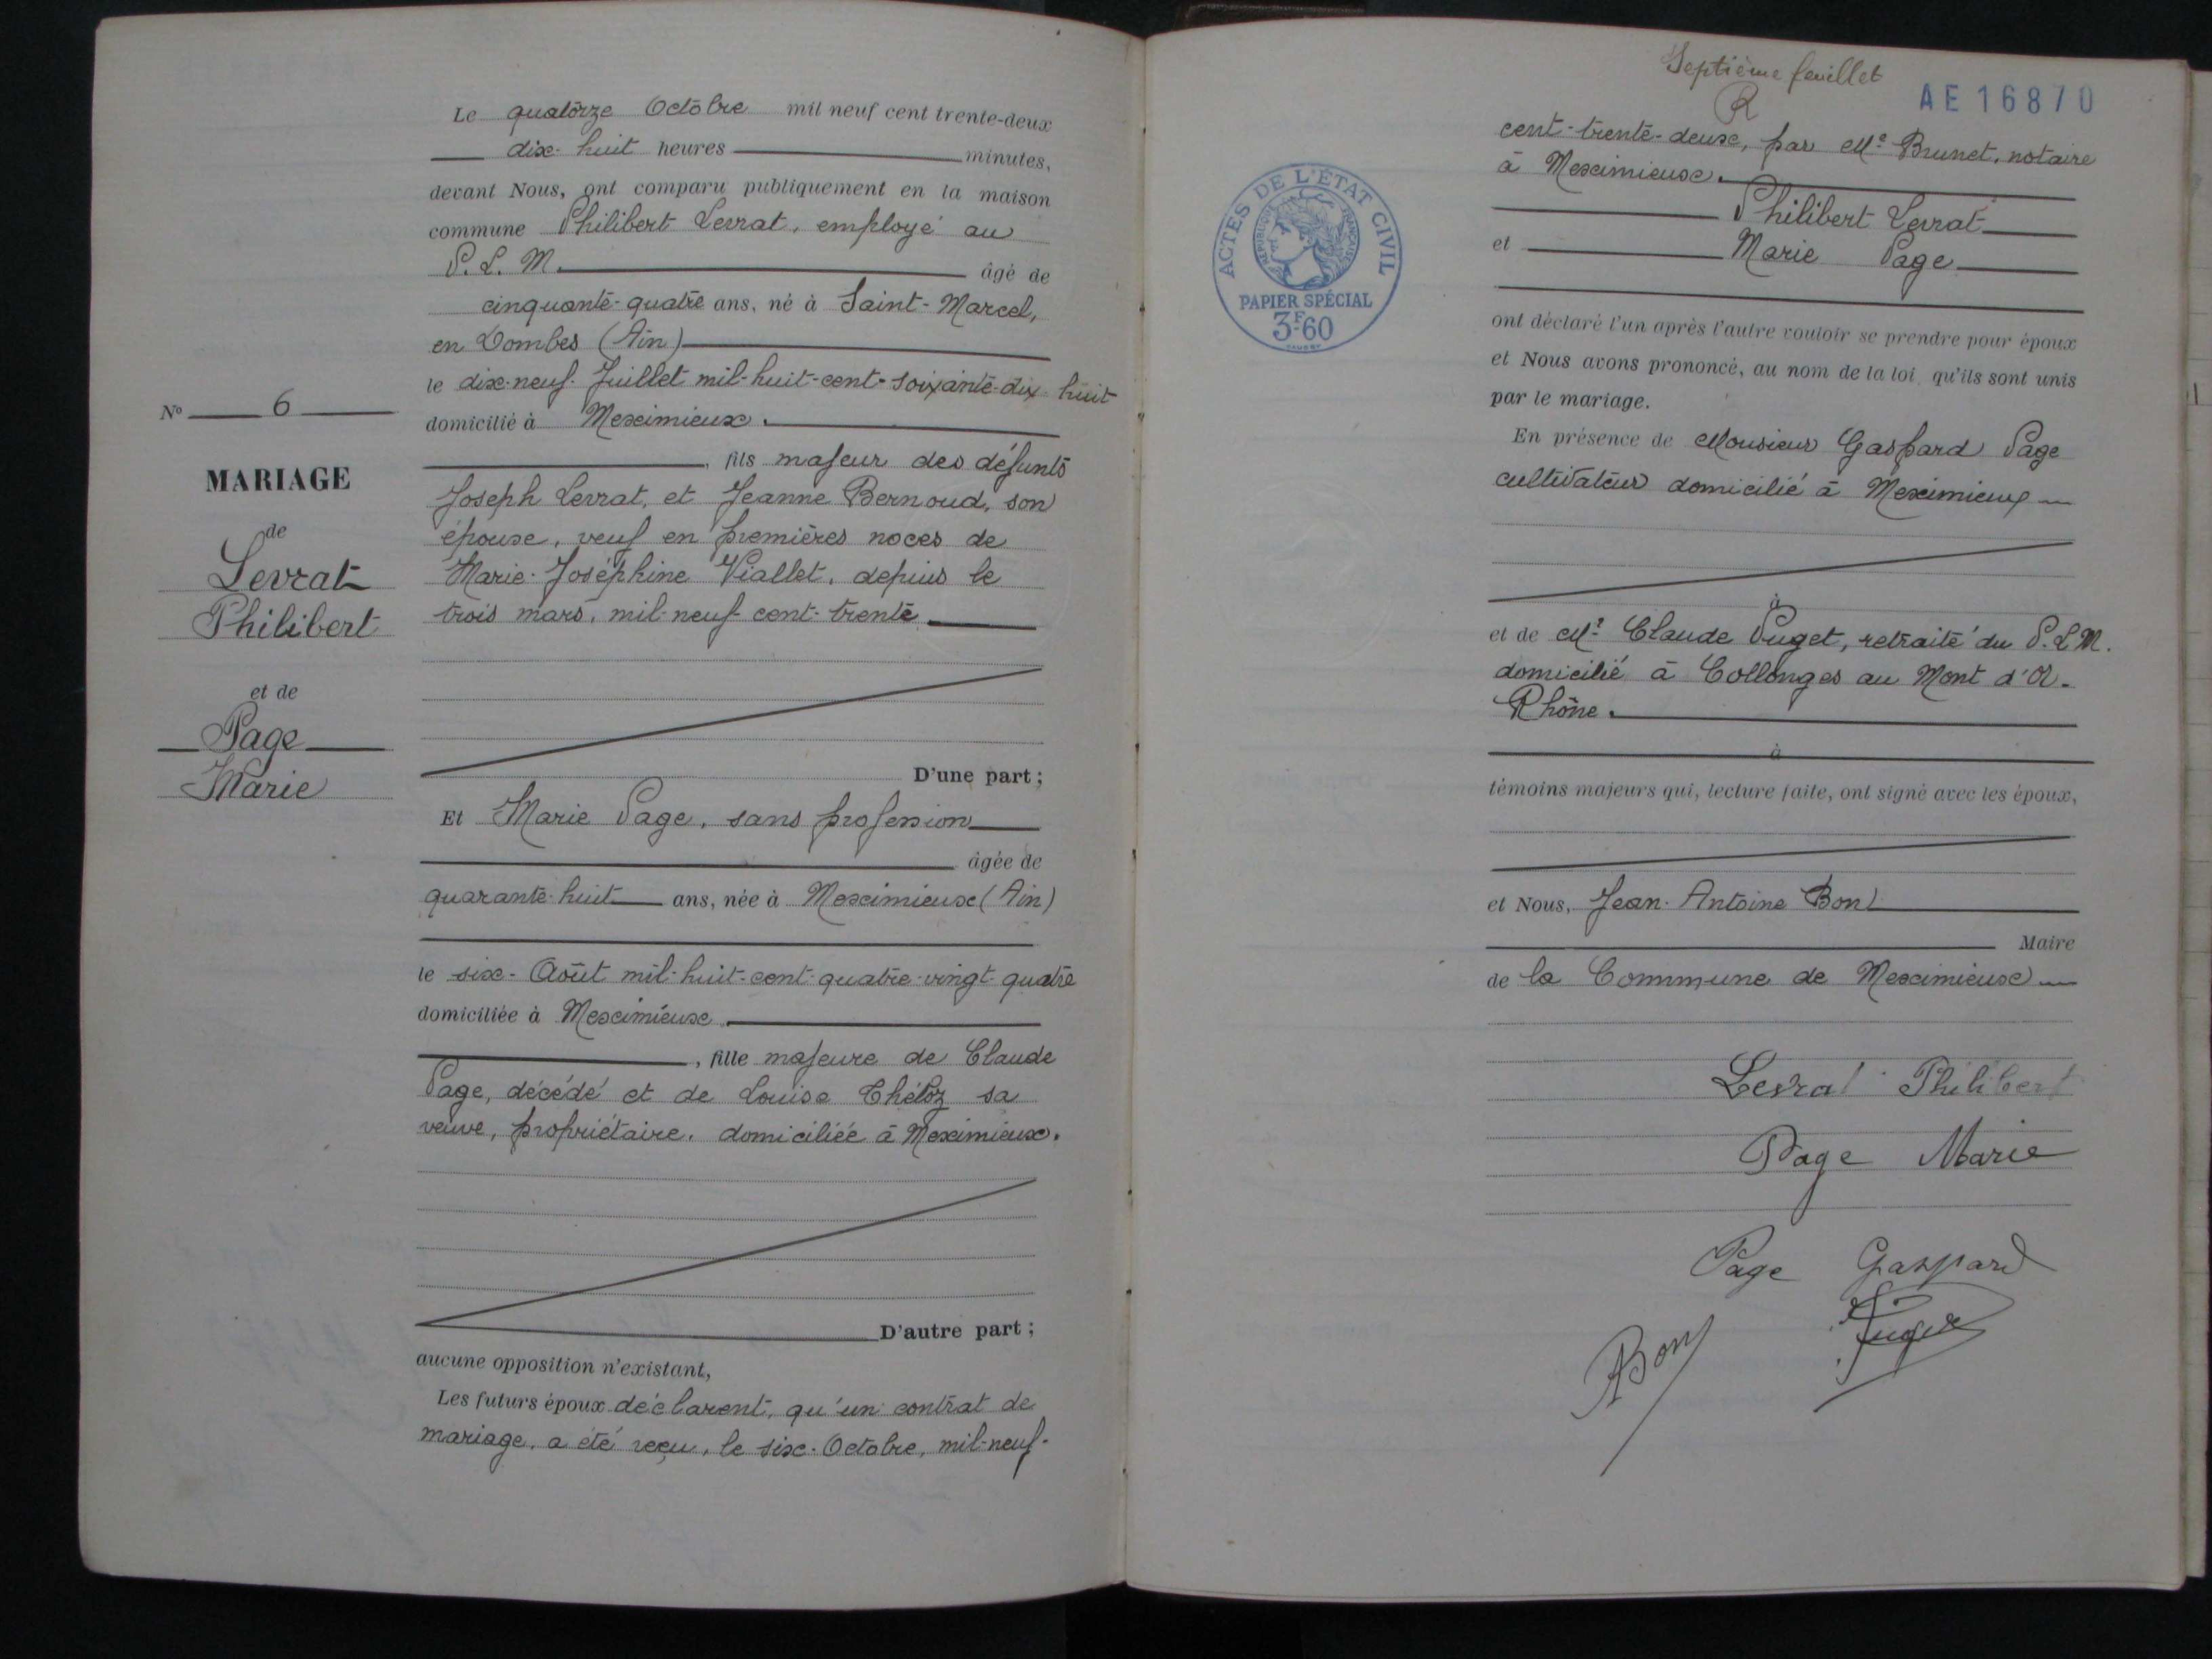 Le quatorze Octobre mil neuf cent trente-deux
dix-huit heures minutes,
devant Nous, ont comparu publiquement en la maison
commune Philibert Levrat, employé au
P. L. M. âgé de
cinquante-quatre ans, né à Saint-Marcel,
en Dombes (Ain)
le dix-neuf Juillet mil-huit-cent-soixante-dix-huit
domicilié à Meximieux.
, fils majeur des défunts
Joseph Levrat, et Jeanne Bernoud, son
épouse, veuf en premières noces de
Marie-Joséphine Viallet, depuis le
trois mars, mil-neuf-cent-trente
D'une part ;
N° 6
MARIAGE
de
Levrat
Philibert
et de
Page
Marie
Et Marie Page, sans profession
âgée de
quarante-huit ans, née à Meximieux (Ain)
le six-Août mil-huit-cent-quatre-vingt-quatre
domiciliée à Meximieux
, fille majeure de Claude
Page, décédé et de Louise Théloz sa
veuve, propriétaire, domiciliée à Meximieux.
D'autre part ;
aucune opposition n'existant,
Les futurs époux déclarent, qu'un contrat de
mariage, a été reçu, le six-Octobre, mil-neuf-
Septième feuillet
R
AE 16870
cent-trente-deux, par Me Brunet, notaire
à Meximieux.
Philibert Levrat
et Marie Page
ACTES DE L'ÉTAT CIVIL
RÉPUBLIQUE FRANÇAISE
PAPIER SPÉCIAL
3F60
ont déclaré l'un après l'autre vouloir se prendre pour époux
et Nous avons prononcé, au nom de la loi qu'ils sont unis
par le mariage.
En présence de Monsieur Gaspard Page
cultivateur domicilié à Meximieux
à
et de Mr Claude Puget, retraité du P.L.M.
domicilié à Collonges au Mont d'Or.
Rhône.
à
témoins majeurs qui, lecture faite, ont signé avec les époux,
et Nous, Jean-Antoine Bon
Maire
de la Commune de Meximieux
Levrat Philibert
Page Marie
Page Gaspard
Puget
Bon